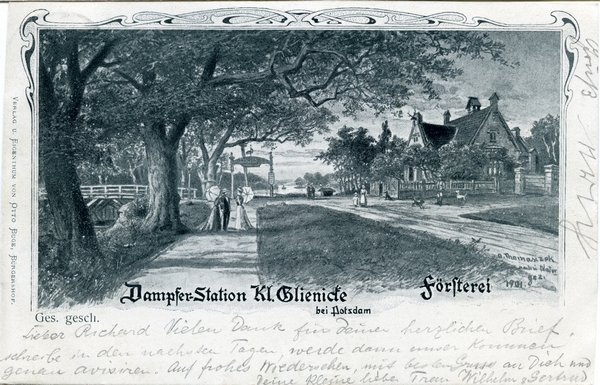 Dampfer-Station Kl. Glienicke
bei Potsdam
Försterei
1901.
Ges. gesch.
VERLAG U. EIGENTHUM VON OTTO BOGE, BÜRGERSHOF.
Lieber Richard Vielen Dank für deinen herzlichen Brief.
schreibe in den nächsten Tagen, werde dann unser Kommen
genau avisieren. Auf frohes Wiedersehen, mit besten Gruss an Dich und
deine kleine liebe Frau Wilhelm & Gertrud